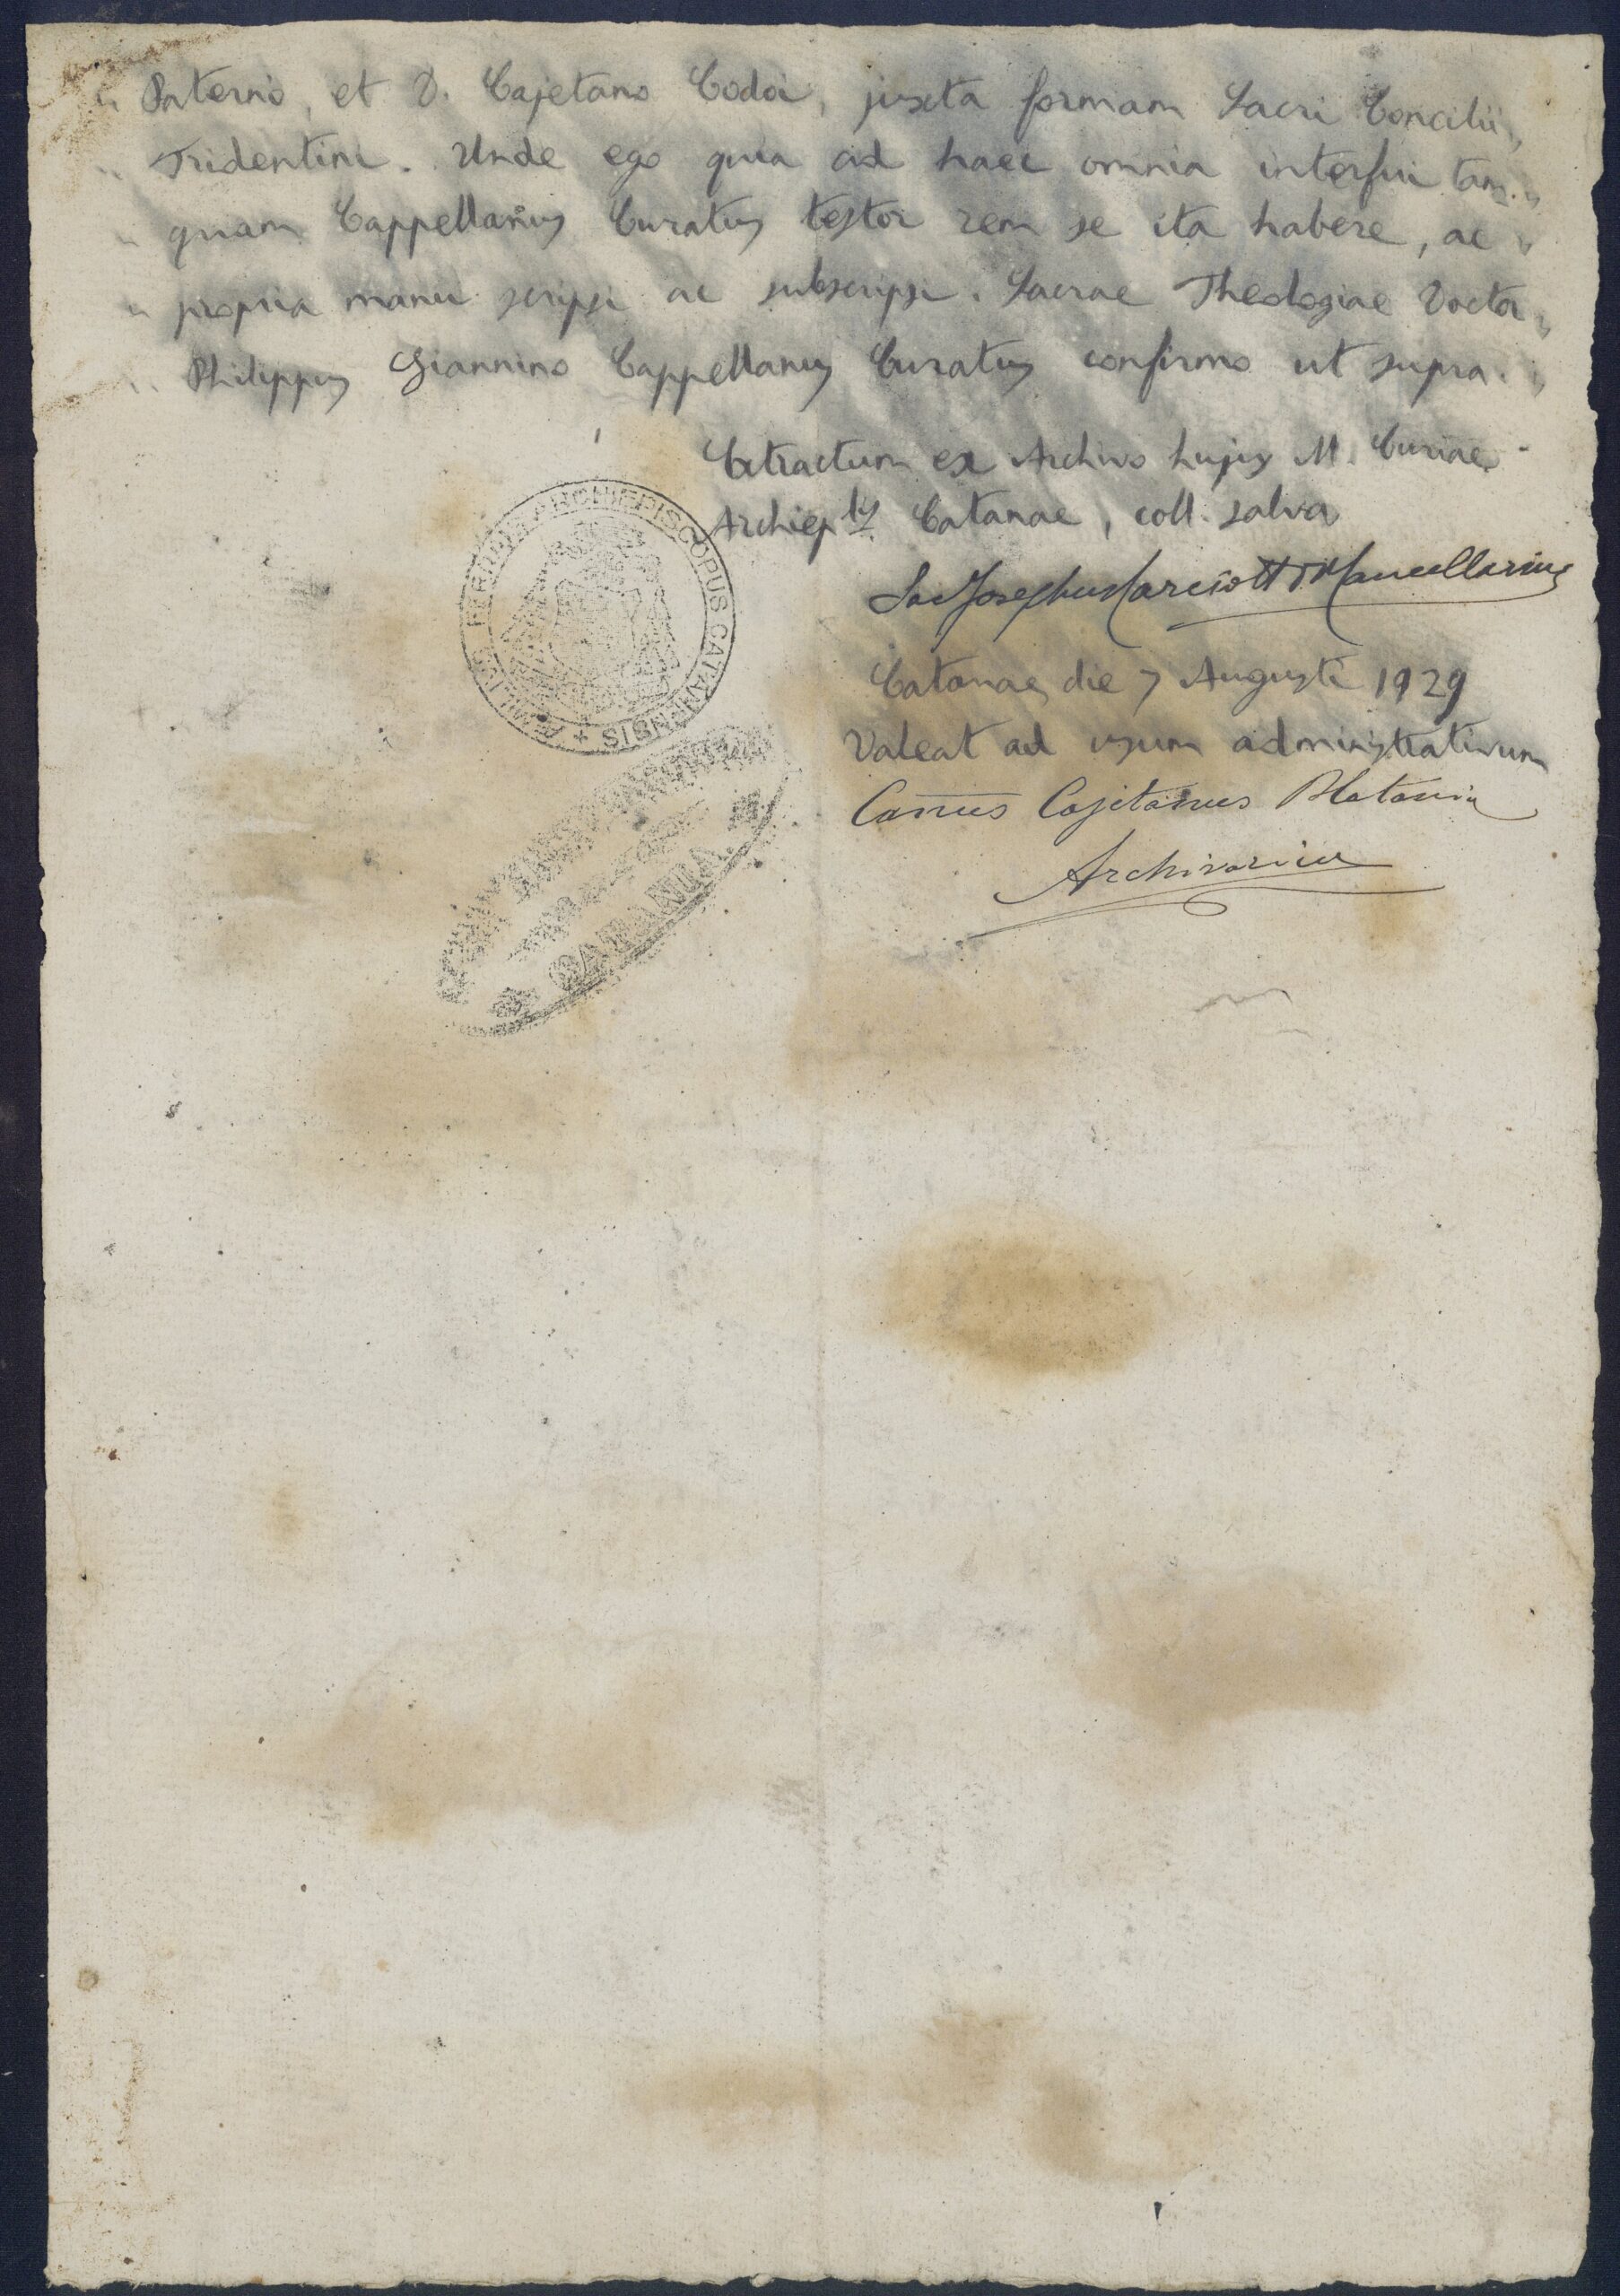 " Paternò, et D. Cajetano Codoi, juxta formam Sacri Concilii "
" Tridentini. Unde ego quia ad haec omnia interfui tam- "
" quam Cappellanus Curatus testor rem se ita habere, ac "
" propria manu scripsi ac subscripsi. Sacrae Theologiae Doctor "
" Philippus Giannino Cappellanus Curatus confirmo ut supra. "
Extractum ex Archivo hujus M. Curiae
Archieplis Catanae, coll. salva
Sac Josephus Cancellarius
Catanae die 7 Augusti 1929
Valeat ad usum administrativum
Canus Cajetanus Platania
Archivarius
ARCHIEPISCOPUS CATANENSIS +
CATANIA